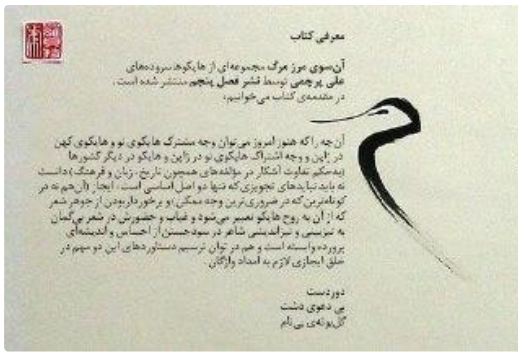 معرفی کتاب
آن‌سوی مرز مرگ مجموعه‌ای از هایکوها سروده‌های
علی پرچمی توسط نشر فصل پنجم منتشر شده است.
در مقدمه‌ی کتاب می‌خوانیم:
آن چه را که هنوز امروز می‌توان وجه مشترک هایکوی نو و هایکوی کهن
در ژاپن و وجه اشتراک هایکوی نو در ژاپن و هایکو در دیگر کشورها
(به‌حکم تفاوت آشکار در مؤلفه‌های همچون تاریخ، زبان و فرهنگ) دانست
نه باید نبایدهای تجویزی که تنها دو اصل اساسی است: ایجاز (آن‌هم نه در
کوتاه‌ترین که در ضروری‌ترین وجه ممکن) و برخوردار بودن از جوهر شعر
که از آن به روح هایکو تعبیر می‌شود و غیاب و حضورش در شعر بی‌گمان
به تیزبینی و تیزاندیشی شاعر در سود جستن از احساس و اندیشه‌ای
پرورده وابسته است و هم در توان ترسیم دستاوردهای این دو مهم در
خلق ایجازی لازم به امداد واژگان.
دوردست
بی دعوی دشت
گل‌بوته‌ی بی‌نام